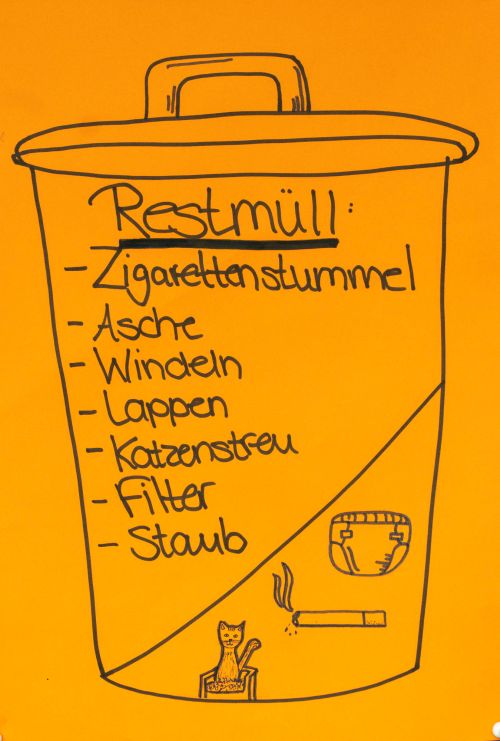 Restmüll:
- Zigarettenstummel
- Asche
- Windeln
- Lappen
- Katzenstreu
- Filter
- Staub